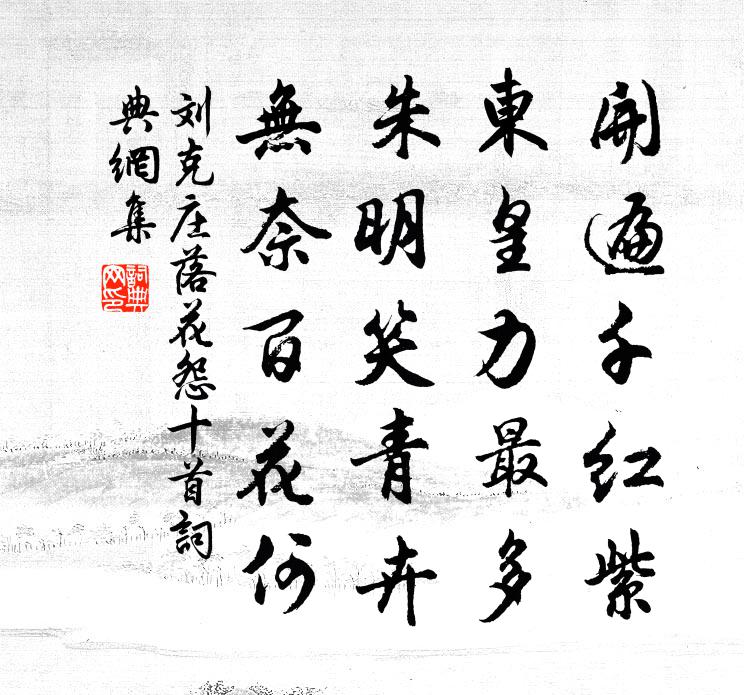 開遍千红紫
東皇力最多
朱明笑青卉
無奈百花何
刘克庄落花怨十首詞
典網集
詞典网印